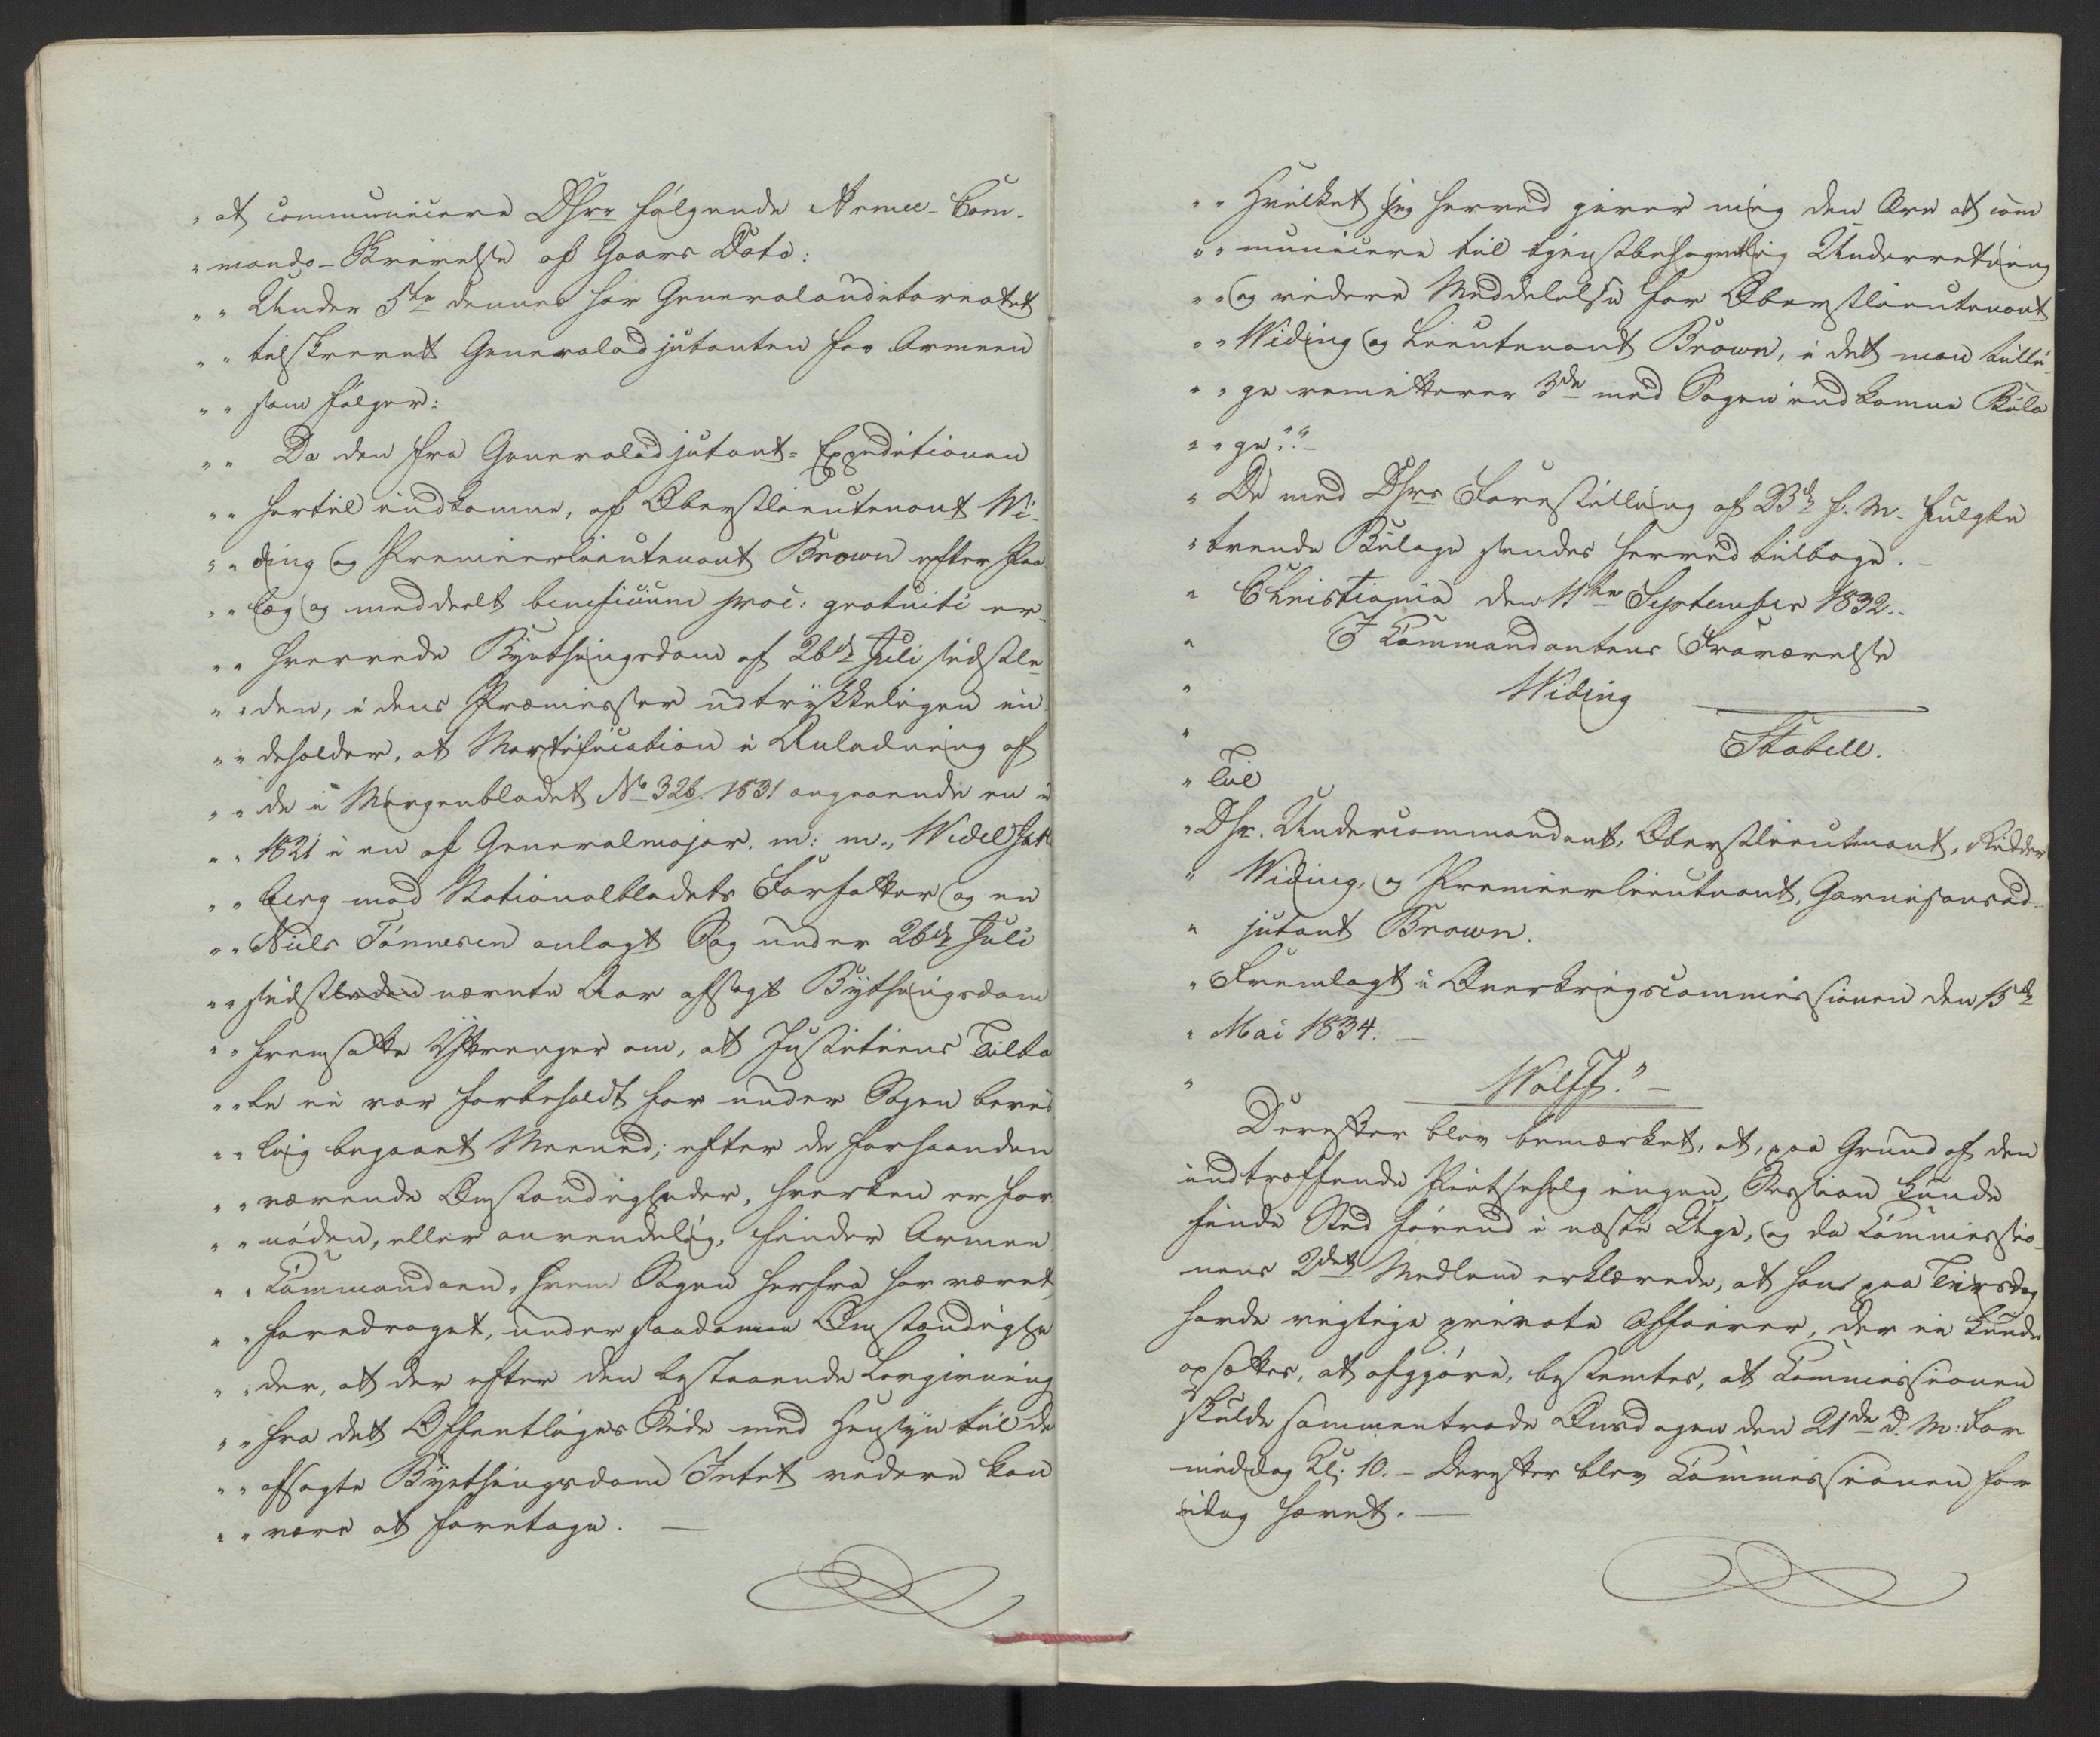 " at communicere Dhrr følgende Armee-Com-
" mando-Skrivelse af Gaars Dato:
" " Under 5te dennes har Generalauditoriatet
" " tilskrevet Generaladjutanten for Armeen
" " som følger:
" " Da den fra Generaladjutant-Expeditionen
" " hertil indkomne, af Oberstlieutenant Wi-
" " ding og Premierlieutenant Brown efter Paa
" " læg og meddeelt beneficium proc: gratuiti er-
" " hvervede Byethingsdom af 26de Juli sidstle-
" " den, i dens Præmisser udtrykkeligen in
" " deholder, at Mortification i Anledning af
" " de i Morgenbladet No 326. 1831 angaaende en i
" " 1821 i en af Generalmajor. m: m., Wedel Jarls
" " berg mod Nationalbladets Forfatter og en
" " Niels Tønnesen anlagt Sag under 26de Juli
" " sidstleden nævnte Aar afsagt Bythingsdom
" " fremsatte Yttringer om, at Justitiens Tilta
" " le ei var forbeholdt for under Sagen bevis
" " lig begaaet Meened; efter de forhaanden
" " værende Omstændigheder, hverken er for
" " nøden, eller anvendelig, finder Armee
" " Commandoen, hvem Sagen herfra har været
" " foredraget, under saadanne Omstændighe
" " der, at der efter den bestaaende Lovgivning
" " fra det Offentliges Side med Hensyn til de
" " afsagte Byethingsdom Intet videre kan
" " være at foretage. —
" " Hvilket jeg herved giver mig den Ære at com
" " municere til tjenstbehagentlig Underretning
" " og videre Meddelelse for Oberstlieutenant
" " Widing og Lieutenant Brown, i det man tilli-
" " ge remitterer 3de med Sagen indkomne Bila
" " ge." "—
" De med Dhrrs Forestilling af 23de f. M. fulgte
" trende Bilage sendes herved tilbage. —
" Christiania den 11te September 1832.
" I Commandantens Fraværelse
" Widing
" Stabell.
" Til
" Dhr. Undercommandant, Oberstlieutenant, Ridder
" Widing, og Premierlieutnant, Garnisonsad-
" jutant Brown.
" Fremlagt i Overkrigscommissionen den 15de
" Mai 1834. —
" Wolff." —
Derefter blev bemærket, at, paa Grund af den
indtræffende Pintsehelg ingen Session kunde
finde Sted førend i næste Uge, og da Commissio-
nens 2det Medlem erklærede, at han paa Tirsdag
havde vigtige private Affairer, der ei kunde
opsættes, at afgjøre, bestemtes, at Commissionen
skulde sammentræde Onsdagen den 21de d. M: For
middag Kl. 10. — Derefter blev Commissionen for
idag hævet. —